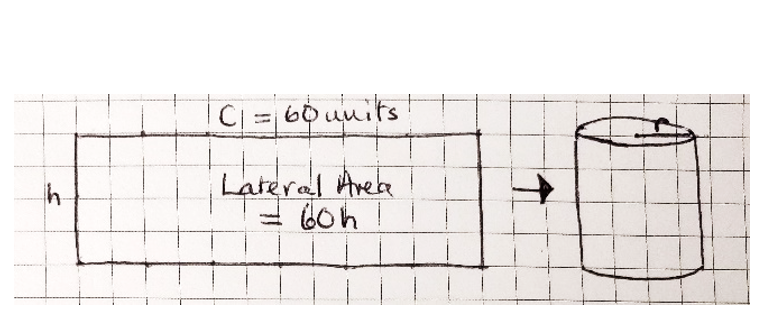 C = 60 units
h
Lateral Area
= 60h
r